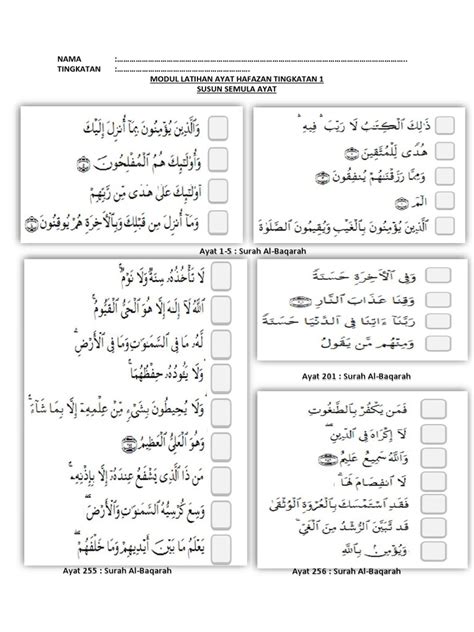 NAMA :.......................................................................................
TINGKATAN :.......................................
MODUL LATIHAN AYAT HAFAZAN TINGKATAN 1
SUSUN SEMULA AYAT
ذَٰلِكَ ٱلْكِتَـٰبُ لَا رَيْبَ ۛ فِيهِ ۛ
هُدًى لِّلْمُتَّقِينَ ۝٢
وَمِمَّا رَزَقْنَـٰهُمْ يُنفِقُونَ ۝٣
الٓمٓ ۝١
ٱلَّذِينَ يُؤْمِنُونَ بِٱلْغَيْبِ وَيُقِيمُونَ ٱلصَّلَوٰةَ
وَٱلَّذِينَ يُؤْمِنُونَ بِمَآ أُنزِلَ إِلَيْكَ
وَأُو۟لَـٰٓئِكَ هُمُ ٱلْمُفْلِحُونَ ۝٥
أُو۟لَـٰٓئِكَ عَلَىٰ هُدًى مِّن رَّبِّهِمْ
وَمَآ أُنزِلَ مِن قَبْلِكَ وَبِٱلْـَٔاخِرَةِ هُمْ يُوقِنُونَ ۝٤
Ayat 1-5 : Surah Al-Baqarah
وَفِى ٱلْـَٔاخِرَةِ حَسَنَةً
وَقِنَا عَذَابَ ٱلنَّارِ ۝٢٠١
رَبَّنَآ ءَاتِنَا فِى ٱلدُّنْيَا حَسَنَةً
وَمِنْهُم مَّن يَقُولُ
Ayat 201 : Surah Al-Baqarah
لَا تَأْخُذُهُۥ سِنَةٌ وَلَا نَوْمٌ ۚ
ٱللَّهُ لَآ إِلَـٰهَ إِلَّا هُوَ ٱلْحَىُّ ٱلْقَيُّومُ ۚ
لَّهُۥ مَا فِى ٱلسَّمَـٰوَٰتِ وَمَا فِى ٱلْأَرْضِ ۗ
وَلَا يَـُٔودُهُۥ حِفْظُهُمَا ۚ
وَلَا يُحِيطُونَ بِشَىْءٍ مِّنْ عِلْمِهِۦٓ إِلَّا بِمَا شَآءَ ۚ
وَهُوَ ٱلْعَلِىُّ ٱلْعَظِيمُ ۝٢٥٥
مَن ذَا ٱلَّذِى يَشْفَعُ عِندَهُۥٓ إِلَّا بِإِذْنِهِۦ ۚ
وَسِعَ كُرْسِيُّهُ ٱلسَّمَـٰوَٰتِ وَٱلْأَرْضَ ۖ
يَعْلَمُ مَا بَيْنَ أَيْدِيهِمْ وَمَا خَلْفَهُمْ ۖ
Ayat 255 : Surah Al-Baqarah
فَمَن يَكْفُرْ بِٱلطَّـٰغُوتِ
لَآ إِكْرَاهَ فِى ٱلدِّينِ ۖ
وَٱللَّهُ سَمِيعٌ عَلِيمٌ ۝٢٥٦
لَا ٱنفِصَامَ لَهَا ۗ
فَقَدِ ٱسْتَمْسَكَ بِٱلْعُرْوَةِ ٱلْوُثْقَىٰ
قَد تَّبَيَّنَ ٱلرُّشْدُ مِنَ ٱلْغَىِّ ۚ
وَيُؤْمِنۢ بِٱللَّهِ
Ayat 256 : Surah Al-Baqarah